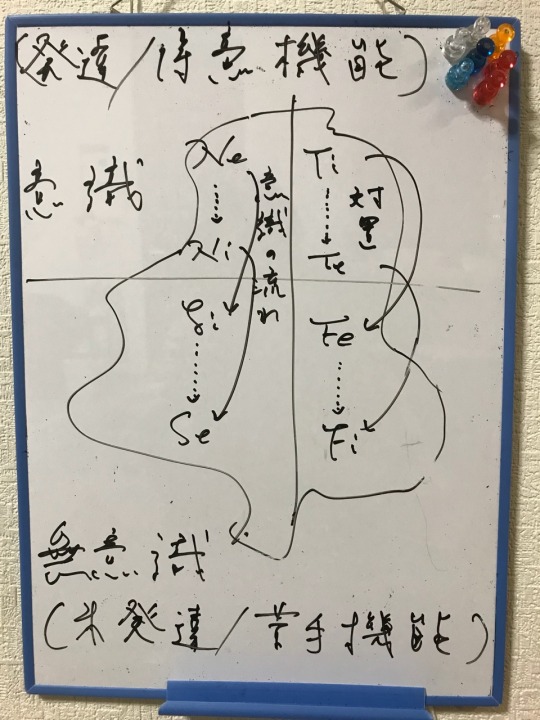 (発達/得意機能)
意識
Ne
Ti
意識の流れ
対
Ni
Te
Si
Fe
Se
Fi
無意識
(未発達/苦手機能)